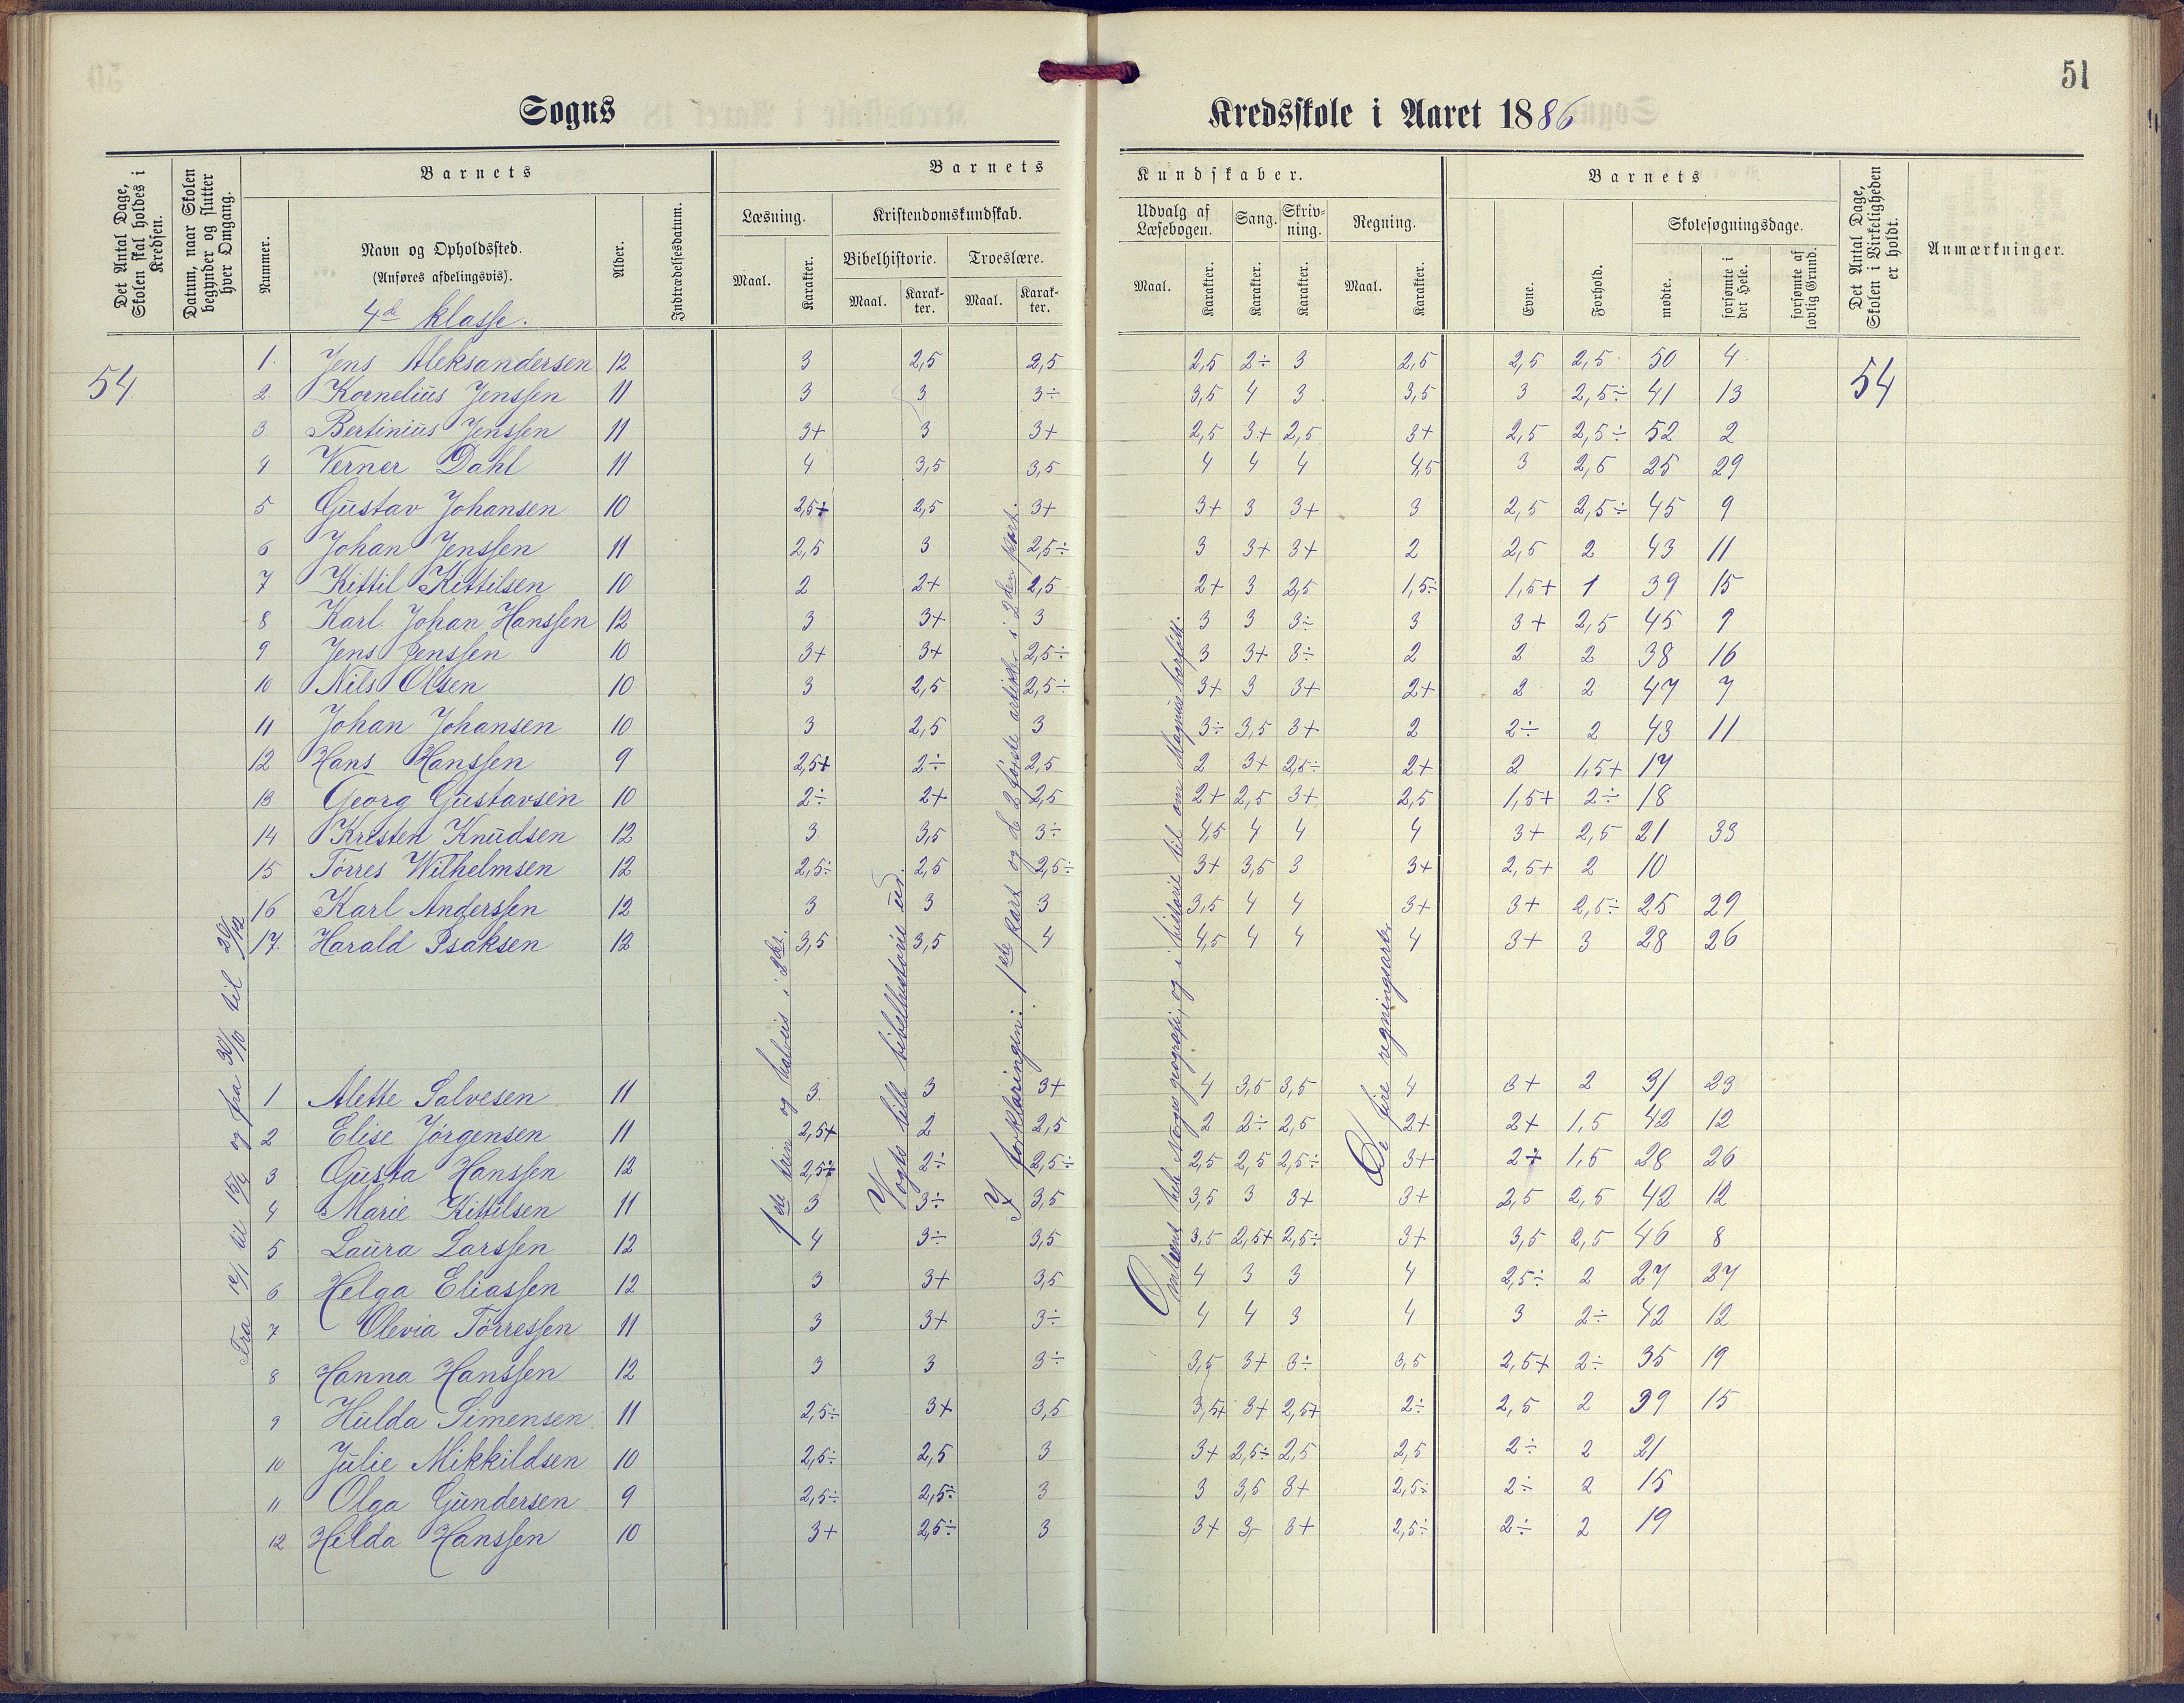 51
Sogns Kredsskole i Aaret 1886
Det Antal Dage, Skolen skal holdes i Kredsen.
Datum, naar Skolen begynder og slutter hver Omgang.
Barnets
Nummer.
Navn og Opholdssted.
(Anføres afdelingsvis).
4de klasse.
Alder.
Indtrædelsesdatum.
Barnets Kundskaber.
Læsning.
Maal. Karakter.
Kristendomskundskab.
Bibelhistorie. Troeslære.
Maal. Karakter. Maal. Karakter.
Udvalg af Læsebogen. Sang. Skrivning. Regning.
Maal. Karakter. Karakter. Karakter. Maal. Karakter.
Barnets
Evne. Forhold.
Skolesøgningsdage.
mødte. forsømte i det Hele. forsømte af lovlig Grund.
Det Antal Dage, Skolen i Virkeligheden er holdt.
Anmærkninger.
54
54
1. Jens Aleksandersen 12 3 2,5 2,5 2,5 2÷ 3 2,5 2,5 2,5 50 4
2. Kornelius Jenssen 11 3 3 3÷ 3,5 4 3 3,5 3 2,5÷ 41 13
3. Bertinius Jenssen 11 3+ 3 3+ 2,5 3+ 2,5 3+ 2,5 2,5÷ 52 2
4 Verner Dahl 11 4 3,5 3,5 4 4 4 4,5 3 2,5 25 29
5 Gustav Johansen 10 2,5+ 2,5 3+ 3+ 3 3+ 3 2,5 2,5÷ 45 9
6 Johan Jenssen 11 2,5 3 2,5÷ 3 3+ 3+ 2 2,5 2 43 11
7 Kittil Kittilsen 10 2 2+ 2,5 2+ 3 2,5 1,5÷ 1,5+ 1 39 15
8 Karl Johan Hanssen 12 3 3+ 3 3 3 3÷ 3 3+ 2,5 45 9
9 Jens Jenssen 10 3+ 3+ 2,5÷ 3 3+ 3÷ 2 2 2 38 16
10 Nils Olsen 10 3 2,5 2,5÷ 3+ 3 3+ 2+ 2 2 47 7
11 Johan Johansen 10 3 2,5 3 3÷ 3,5 3+ 2 2÷ 2 43 11
12 Hans Hanssen 9 2,5+ 2÷ 2,5 2 3+ 2,5÷ 2+ 2 1,5+ 17
13 Georg Gustavsen 10 2÷ 2+ 2,5 2+ 2,5 3+ 2,5 1,5+ 2÷ 18
14 Kristen Knudsen 12 3 3,5 3÷ 4,5 4 4 4 3+ 2,5 21 33
15 Tørres Wilhelmsen 12 2,5÷ 2,5 2,5÷ 3+ 3,5 3 3+ 2,5+ 2 10
16 Karl Anderssen 12 3 3 3 3,5 4 4 3+ 3+ 2,5÷ 25 29
17. Harald Isaksen 12 3,5 3,5 4 4,5 4 4 4 3+ 3 28 26
1 Alette Salvesen 11 3 3 3+ 4 3,5 3,5 4 3+ 2 31 23
2 Elise Jørgensen 11 2,5+ 2 2,5 2 2÷ 2,5 2+ 2+ 1,5 42 12
3 Gusta Hanssen 12 2,5÷ 2÷ 2,5÷ 2,5 2,5 2,5÷ 3+ 2+ 1,5 28 26
4 Marie Kittilsen 11 3 3÷ 3,5 3,5 3 3+ 3+ 2,5 2,5 42 12
5 Laura Larssen 12 4 3÷ 3,5 3,5 2,5+ 2,5÷ 3+ 3,5 2,5 46 8
6 Helga Eliassen 12 3 3+ 3,5 4 3 3 4 2,5÷ 2 27 27
7 Olevia Tørressen 11 3 3+ 3÷ 4 4 3 4 3 2÷ 42 12
8 Hanna Hanssen 12 3 3 3÷ 3,5 3+ 3÷ 3,5 2,5+ 2÷ 35 19
9 Hulda Simensen 11 2,5÷ 3+ 3,5 3,5+ 3+ 2,5+ 2÷ 2,5 2 39 15
10 Julie Mikkildsen 10 2,5÷ 2,5 3 3+ 2,5÷ 2,5 2,5 2÷ 2 21
11 Olga Gundersen 9 2,5÷ 2,5÷ 3 3 3,5 3+ 2,5÷ 2÷ 2 15
12 Hilda Hanssen 10 3+ 2,5÷ 3 3+ 3- 3+ 2,5÷ 2÷ 2 19
Fra 12/1 til 15/4 og fra 30/10 til 20/12
1ste trin og halveis i 2det.
Vogts lille bibelhistorie ud.
I forklaringen: 1ste part og de 2 første artikler i 2den part.
Omtrent hele Norges geografi, og i historie til om Magnus barfot.
De fire regningsarter